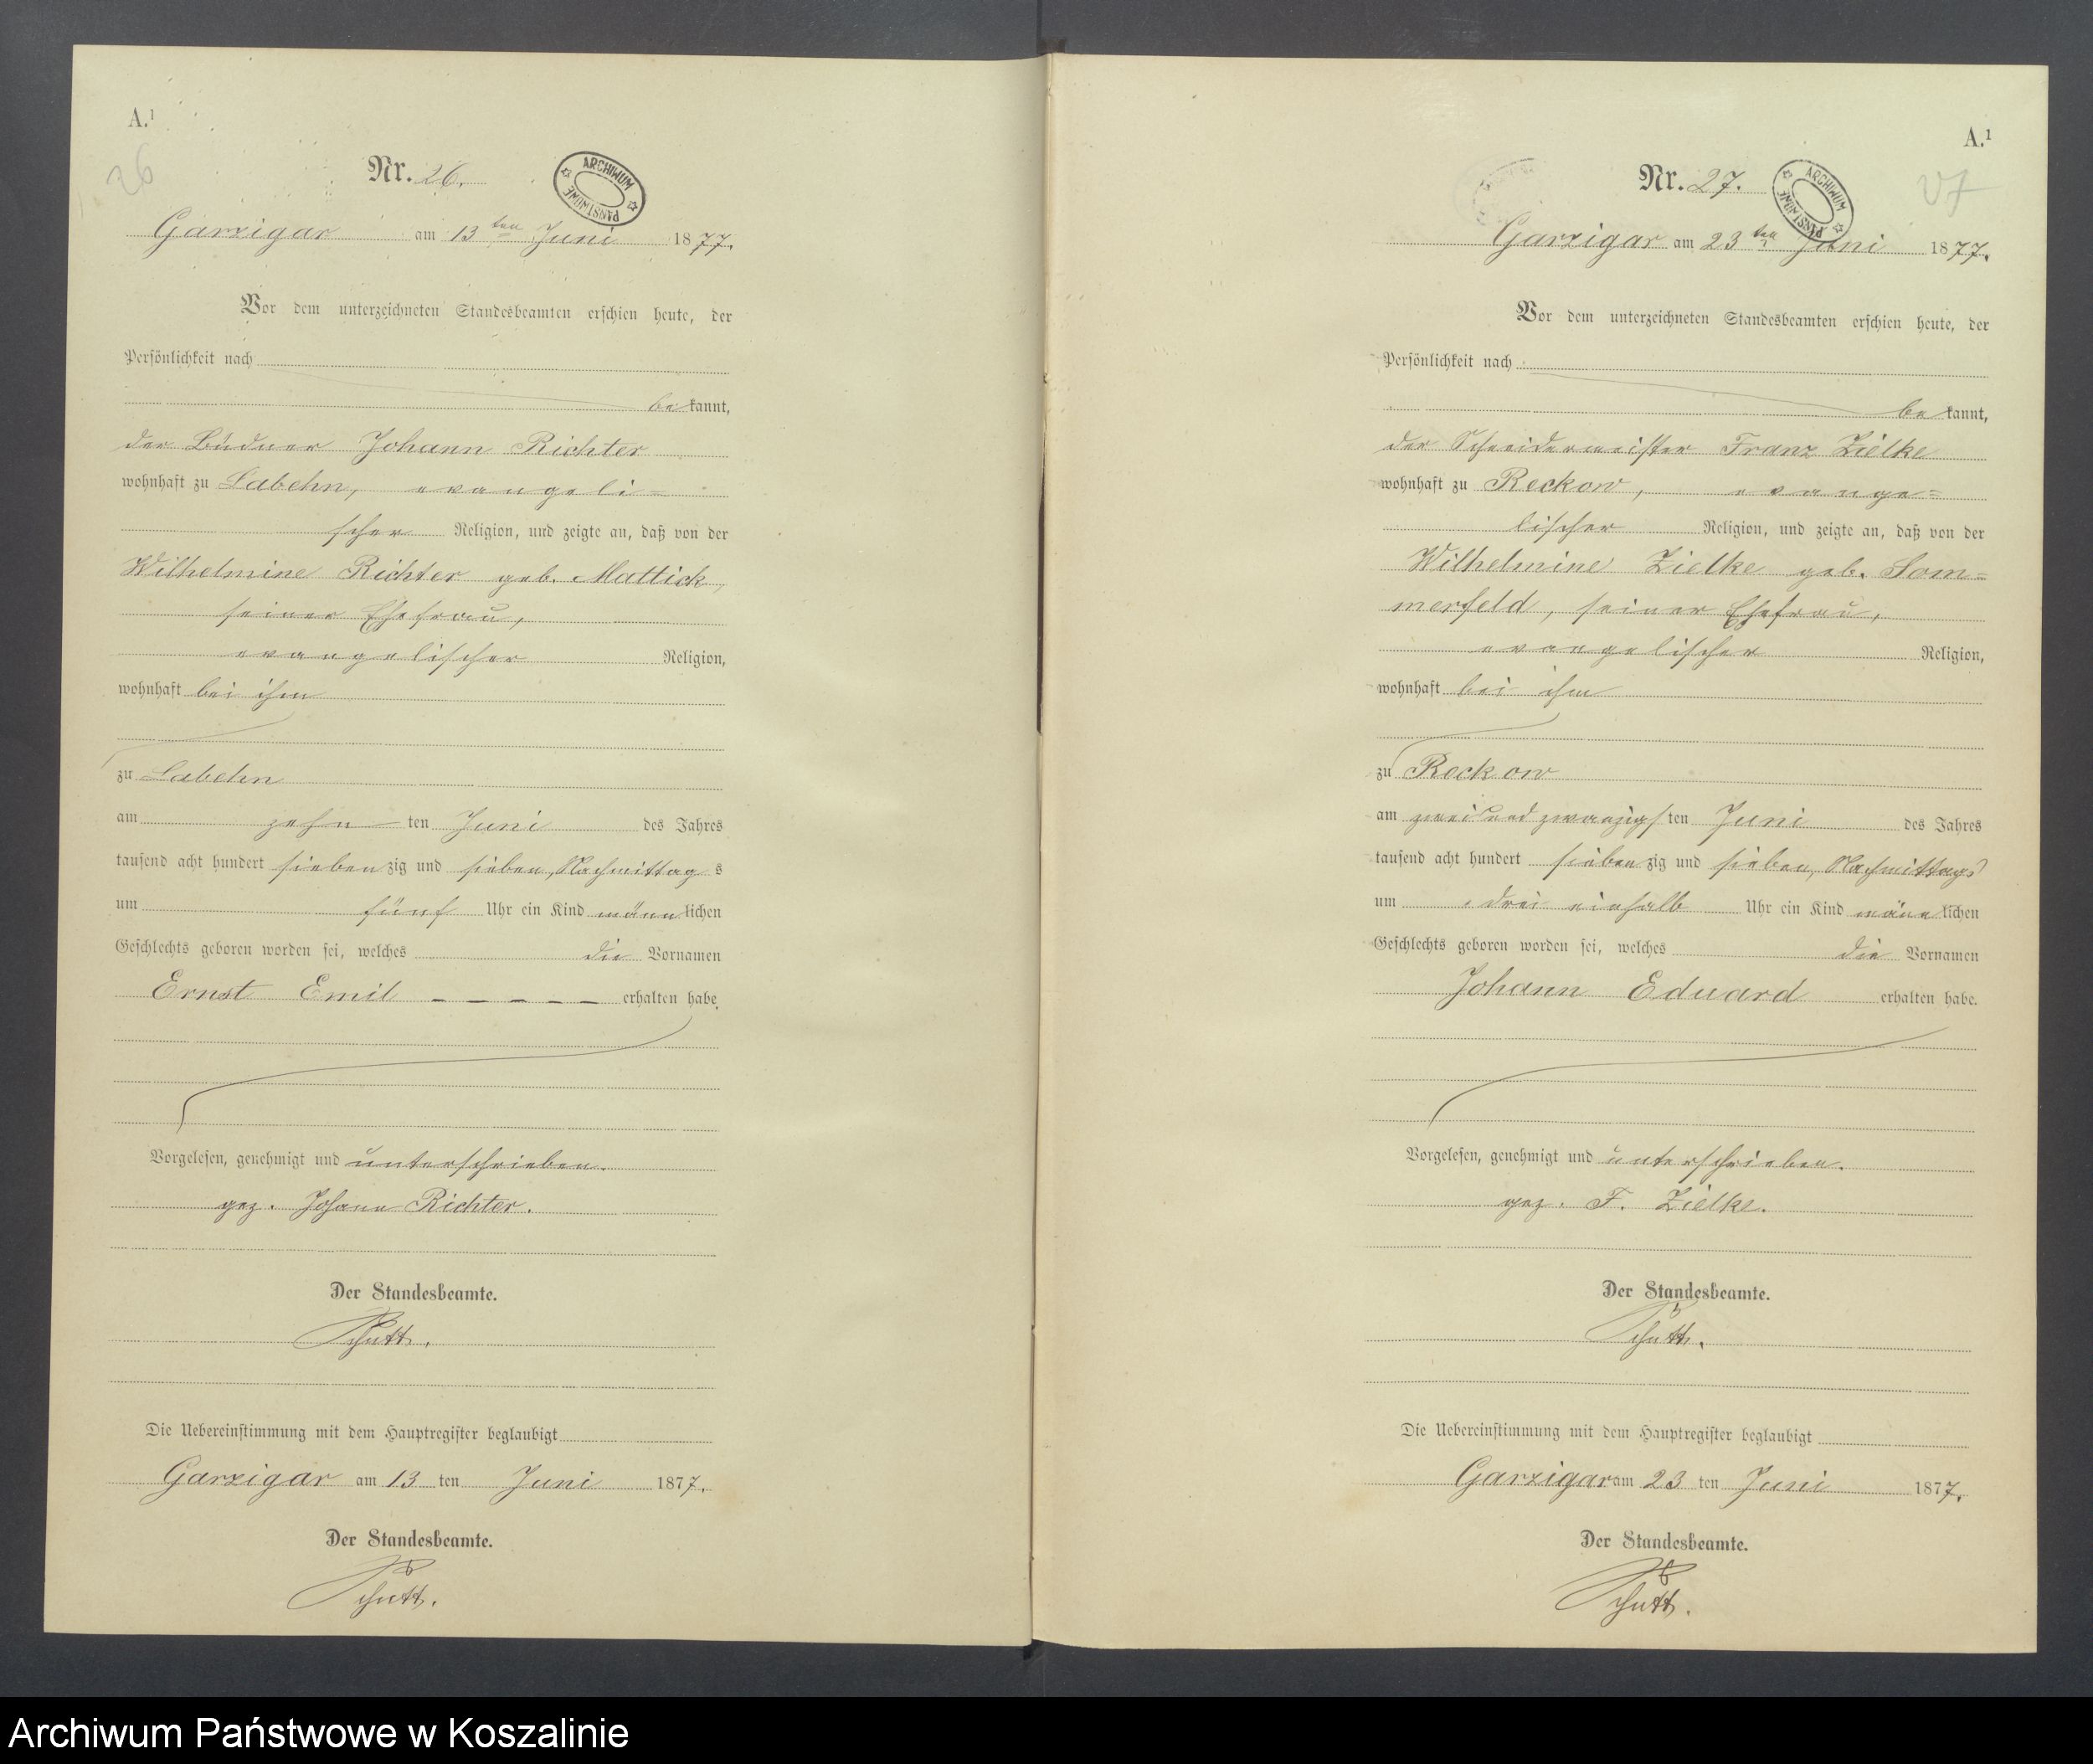 A.¹
26
Nr. 26.
ARCHIWUM PAŃSTWOWE
Garzigar am 13ten Juni 1877.
Vor dem unterzeichneten Standesbeamten erschien heute, der
Persönlichkeit nach
bekannt,
der Büdner Johann Richter
wohnhaft zu Labehn, evangeli=
scher Religion, und zeigte an, daß von der
Wilhelmine Richter geb. Mattick,
seiner Ehefrau,
evangelischer Religion,
wohnhaft bei ihm
zu Labehn
am zehnten Juni des Jahres
tausend acht hundert siebenzig und sieben, Nachmittags
um fünf Uhr ein Kind männlichen
Geschlechts geboren worden sei, welches die Vornamen
Ernst Emil – – – – – erhalten habe.
Vorgelesen, genehmigt und unterschrieben.
gez. Johann Richter.
Der Standesbeamte.
Schutt.
Die Uebereinstimmung mit dem Hauptregister beglaubigt
Garzigar am 13ten Juni 1877.
Der Standesbeamte.
Schutt.
A.¹
27
Nr. 27.
ARCHIWUM PAŃSTWOWE
Garzigar am 23ten Juni 1877.
Vor dem unterzeichneten Standesbeamten erschien heute, der
Persönlichkeit nach
bekannt,
der Schneidermeister Franz Zielke
wohnhaft zu Reckow, evange=
lischer Religion, und zeigte an, daß von der
Wilhelmine Zielke geb. Som=
merfeld, seiner Ehefrau,
evangelischer Religion,
wohnhaft bei ihm
zu Reckow
am zwei und zwanzigsten Juni des Jahres
tausend acht hundert siebenzig und sieben, Nachmittags
um drei einhalb Uhr ein Kind männlichen
Geschlechts geboren worden sei, welches die Vornamen
Johann Eduard erhalten habe.
Vorgelesen, genehmigt und unterschrieben.
gez. F. Zielke.
Der Standesbeamte.
Schutt.
Die Uebereinstimmung mit dem Hauptregister beglaubigt
Garzigar am 23ten Juni 1877.
Der Standesbeamte.
Schutt.
Archiwum Państwowe w Koszalinie